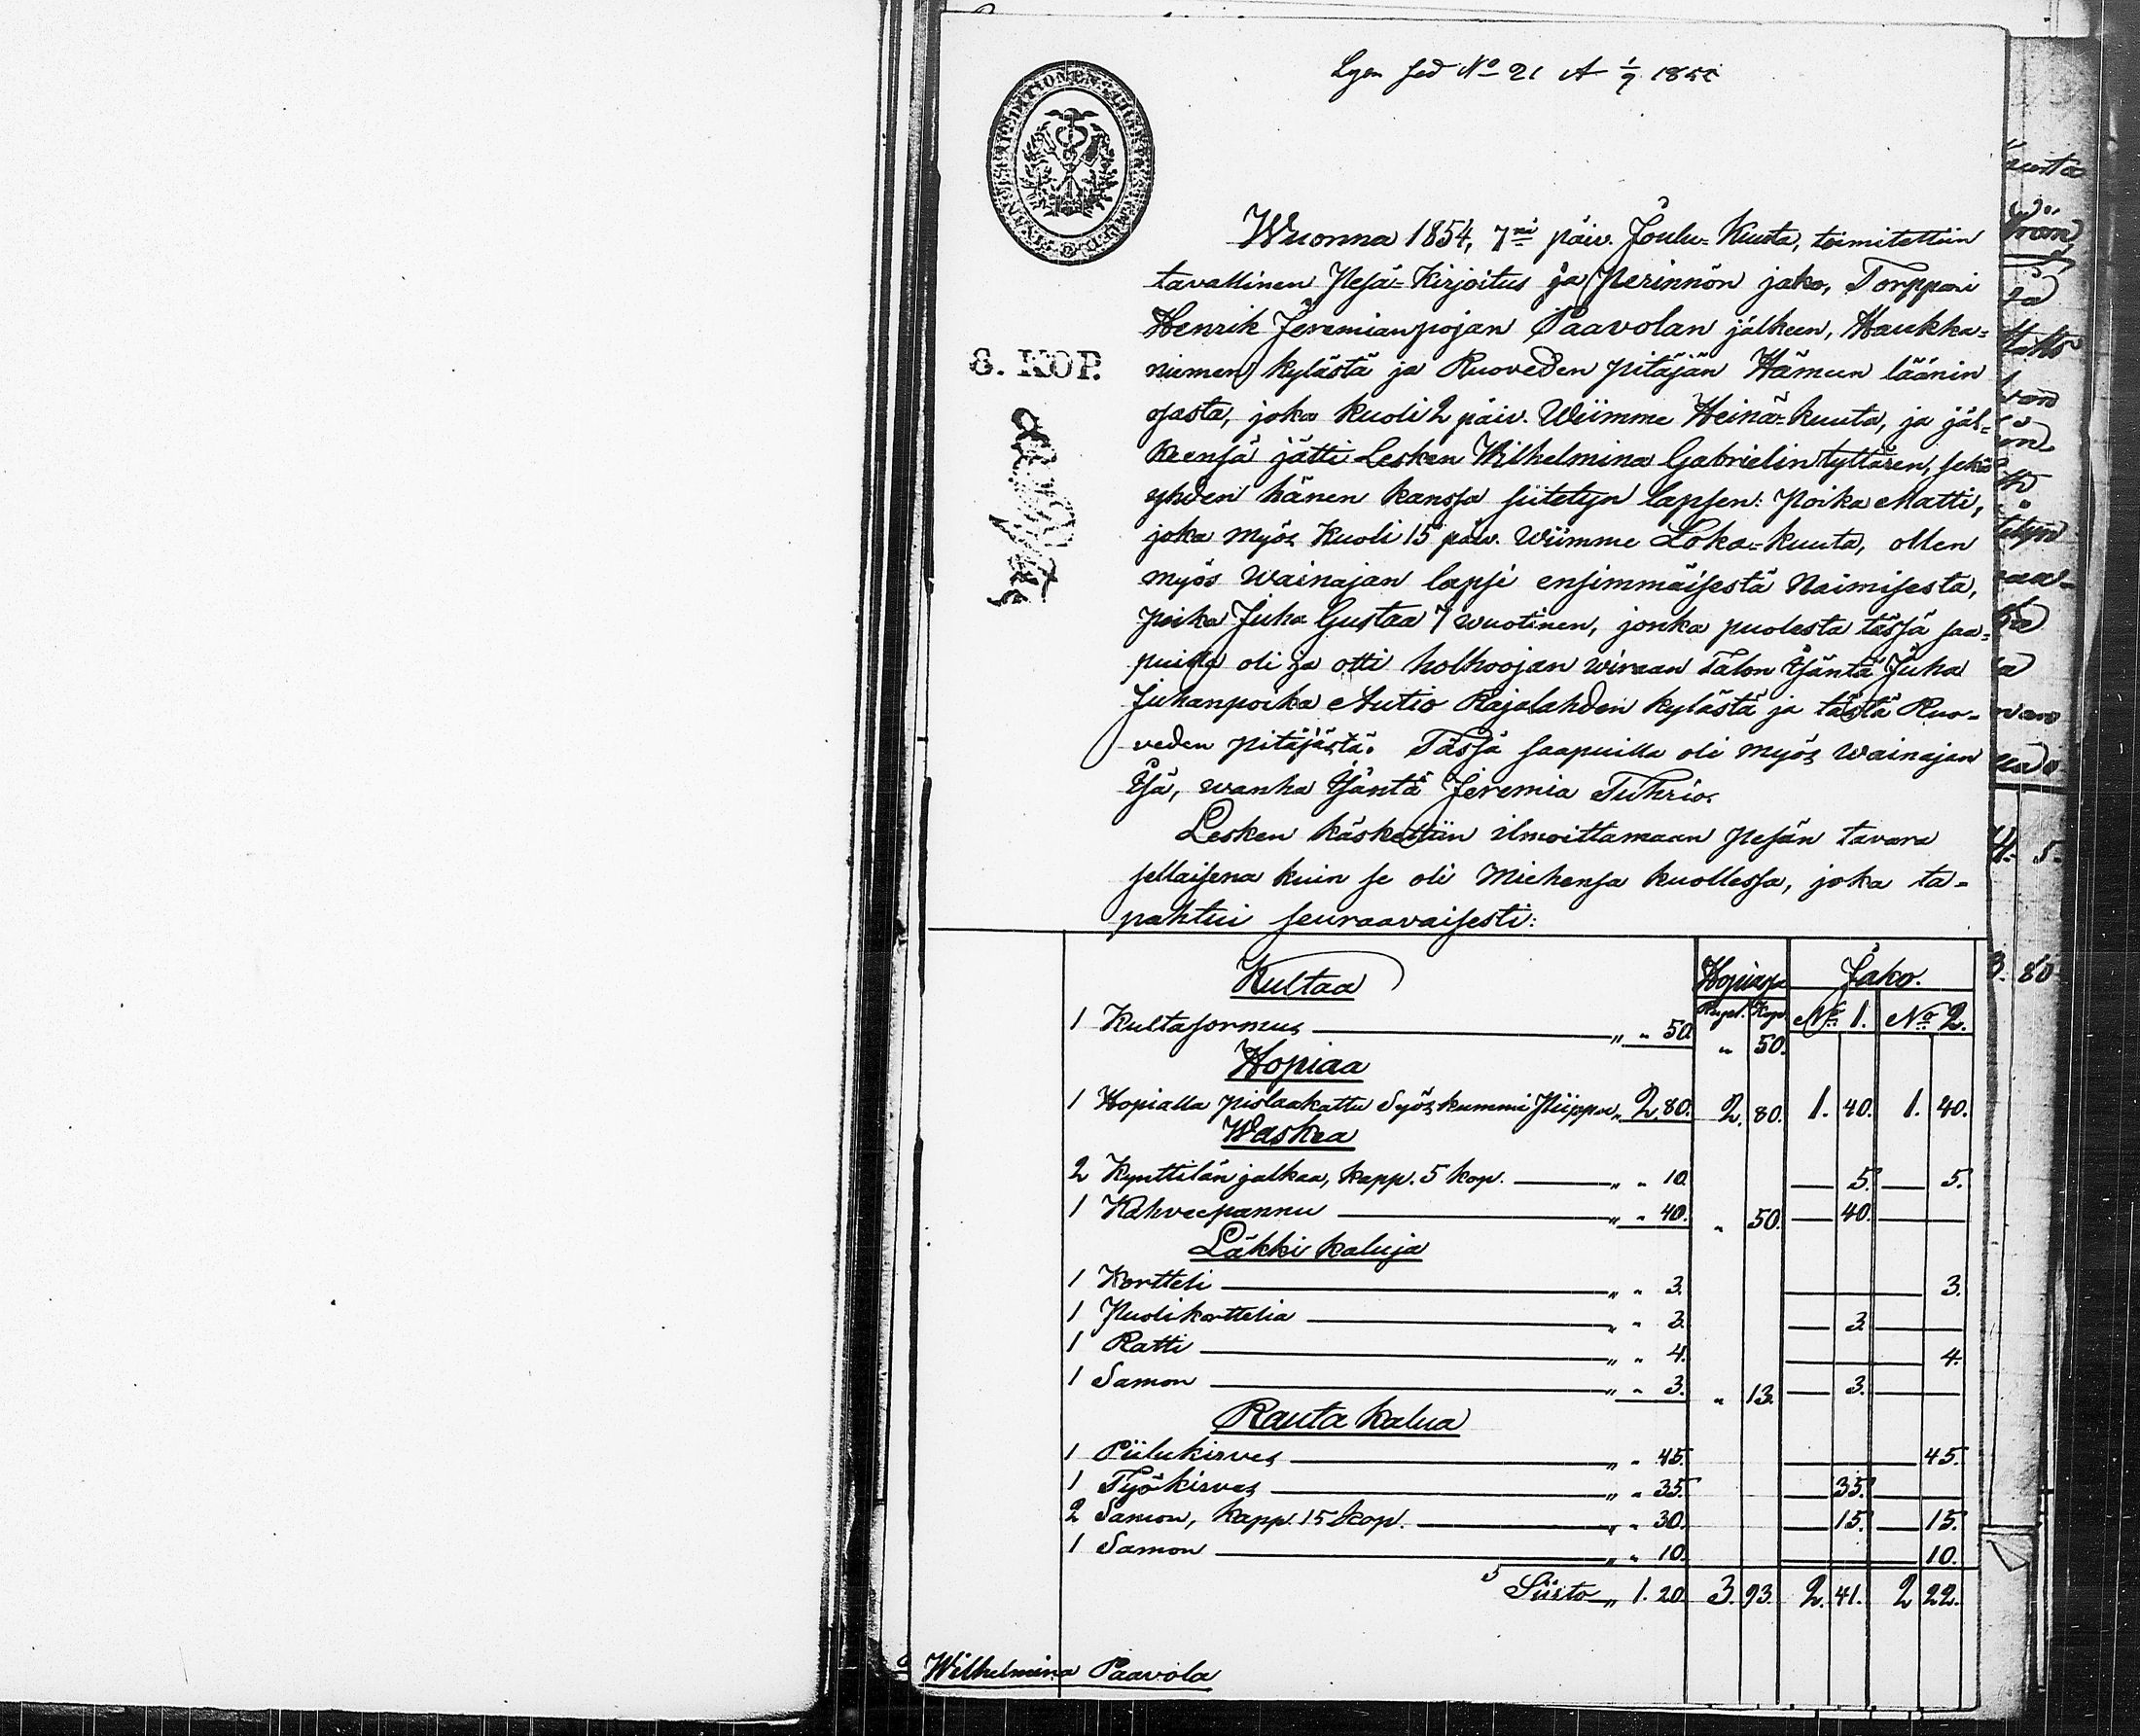 No 21 A 1/9
8. KOP.
Wuonna 1854, 7ni päiv. Joulu-Kuuta, toimitettiin
tavallinen Pesä-Kirjoitus ja Perinnön jako, Torppari
Henrik Jeremianpojan Paavolan jälkeen, Haukka-
niemen kylästä ja Ruoveden pitäjän Hämeen läänin
osasta, joka kuoli 2 päiv. Wiimme Heinä-kuuta, ja jäl-
keensä jätti Lesken Wilhelmina Gabrielintyttären, sekä
yhden hänen kanssa siitetyn lapsen: Poika Matti,
joka myös kuoli 15 päiv. Wiimme Loka-kuuta, ollen
myös wainajan lapsi ensimmäisestä Naimisesta,
poika Juha Gustaa 7 wuotinen, jonka puolesta tässä saa-
puilla oli ja otti holhoojan wiraan Talon Isäntä Juha
Juhanpoika Autio Rajalahden kylästä ja tästä Ruo-
veden pitäjästä. Tässä saapuilla oli myös wainajan
Isä, wanha Isäntä Jeremia Tuhrio.
Lesken käskettiin ilmoittamaan pesän tavara
sellaisena kuin se oli Miehensä kuollessa, joka ta-
pahtui seuraavaisesti:
Kultaa Hopiaa Jako.
Rupl. Kop. No 1. No 2.
1 Kultasormus " " 50. " 50.
Hopiaa
1 Hopialla pislaakattu Piippu " 2.80. 2. 80. 1. 40. 1. 40.
Waskea
2 Kynttilän jalkaa, kapp. 5 kop. " " 10. 5. 5.
1 Kahveepannu " " 40. " 50. 40.
Läkki kaluja
1 Kortteli " " 3. 3.
1 Puolikorttelia " " 3. 3.
1 Ratti " " 4. 4.
1 Samon " " 3. " 13. 3.
Rauta kalua
1 Piilukirves " " 45. 45.
1 Työkirves " " 35. 35.
2 Samon, kapp. 15 kop. " " 30. 15. 15.
1 Samon " " 10. 10.
Siirto " 1.20. 3. 93. 2. 41. 2 22.
Wilhelmina Paavola